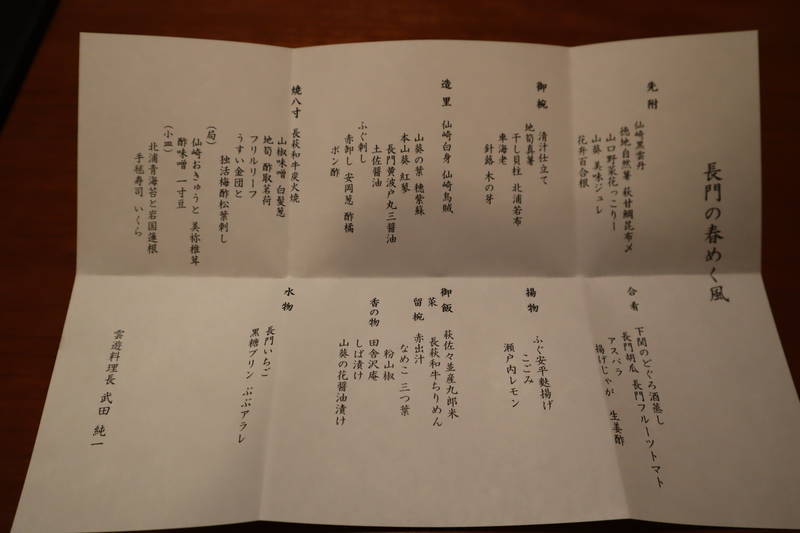 長門の春めく風
先附
仙崎黒雲丹
徳地自然薯 萩甘鯛昆布〆
山口野菜花っこりー
山葵 美味ジュレ
花弁百合根
御椀
清汁仕立て
地筍真薯
干し貝柱 北浦若布
車海老
針蕗 木の芽
造里
仙崎白身 仙崎烏賊
山葵の葉 穂紫蘇
本山葵 紅蓼
長門黄波戸丸三醤油
土佐醤油
ふぐ刺し
赤卸し 安岡葱 酢橘
ポン酢
焼八寸
長萩和牛炭火焼
山椒味噌 白髪葱
地筍 酢取茗荷
フリルリーフ
うすい金団と
独活梅酢松葉刺し
仙崎おきゅうと 美祢椎茸
酢味噌 一寸豆
(小皿)
北浦青海苔と岩国蓮根
手毬寿司 いくら
合肴
下関のどぐろ酒蒸し
長門胡瓜 長門フルーツトマト
アスパラ
揚げじゃが 生姜酢
揚物
ふぐ安平麩揚げ
こごみ
瀬戸内レモン
御飯
萩佐々並産九郎米
菜
長萩和牛ちりめん
留椀
赤出汁
なめこ 三つ葉
粉山椒
香の物
田舎沢庵
しば漬け
山葵の花醤油漬け
水物
長門いちご
黒糖プリン ぶぶアラレ
雲遊料理長 武田 純一